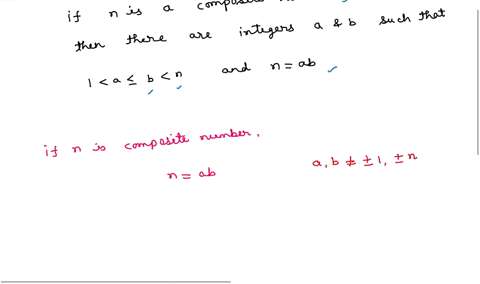 if n is a composite
then there are integers a & b such that
1 < a ≤ b < n and n = ab
if n is composite number,
n = ab a, b ≠ ±1, ±n